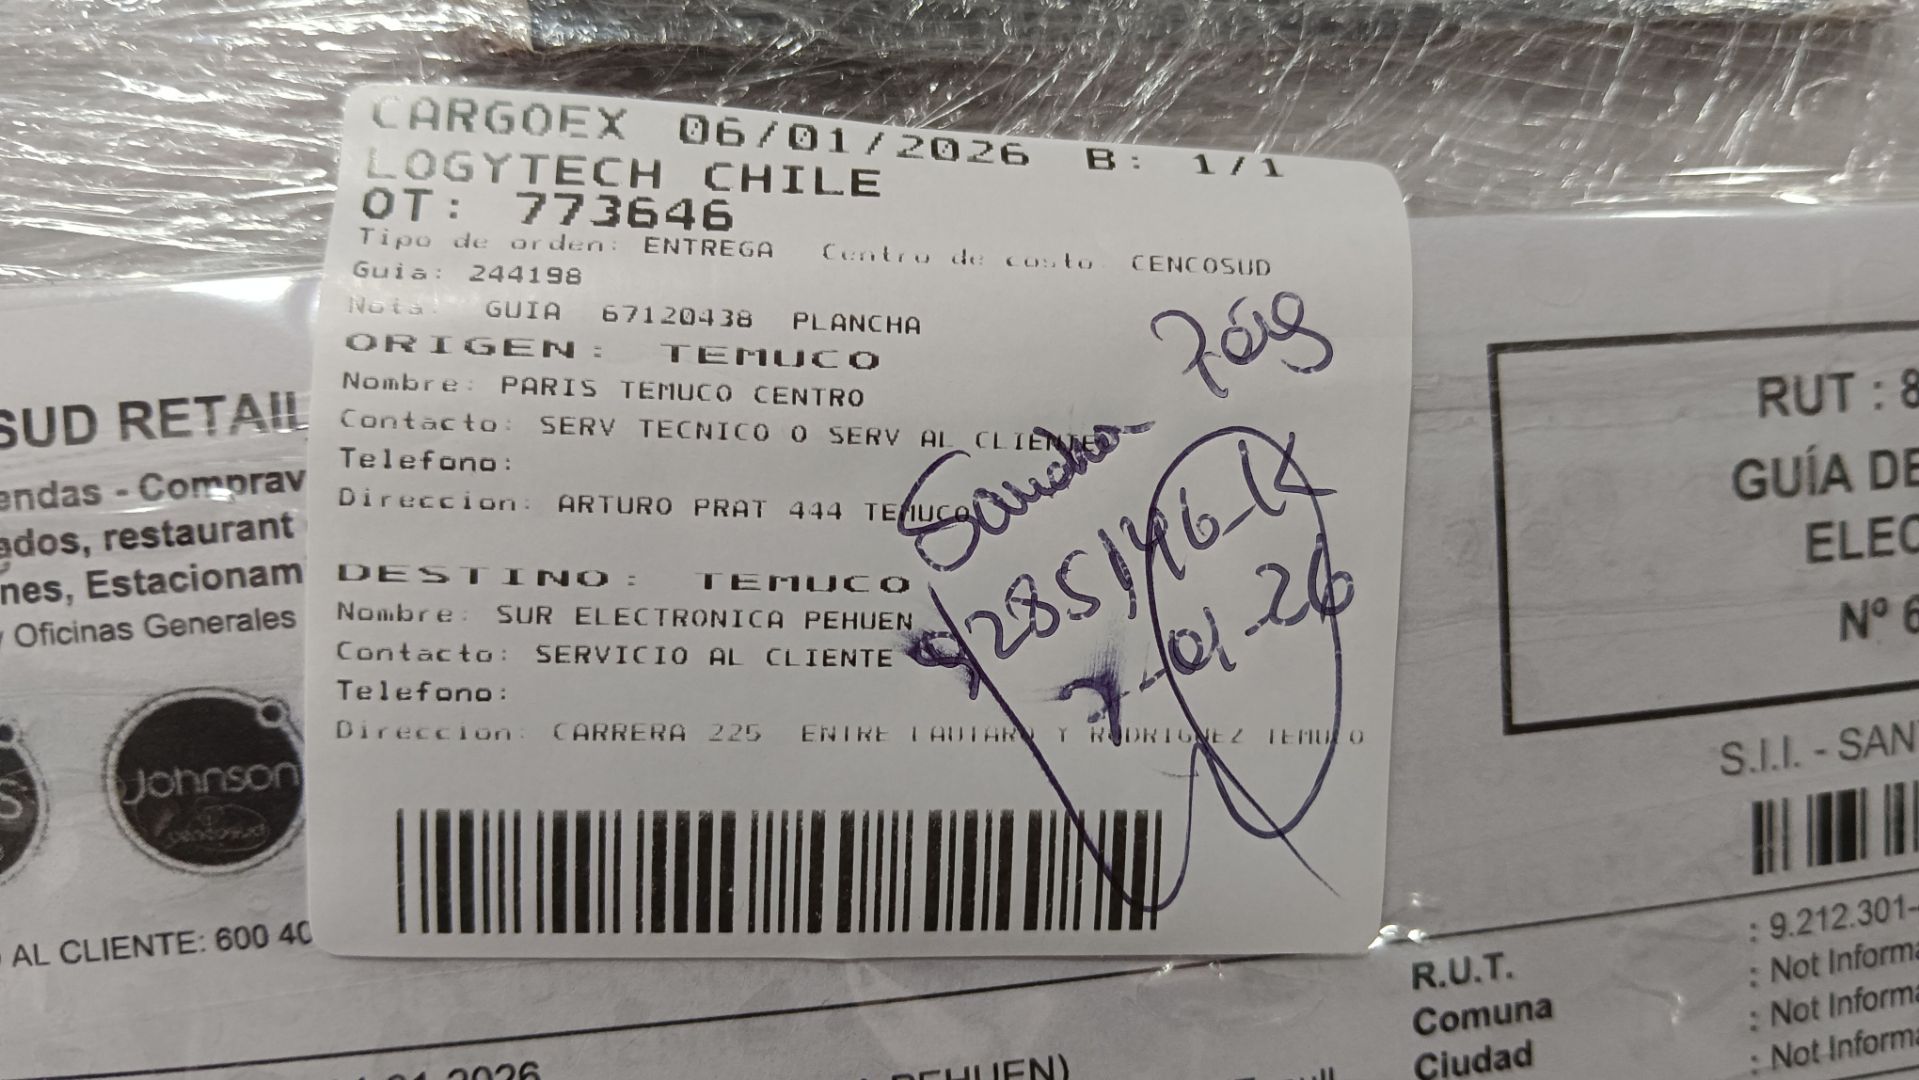 CARGOEX 06/01/2026 B: 1/1
LOGYTECH CHILE
OT: 773646
Tipo de orden: ENTREGA Centro de costo: CENCOSUD
Guia: 244198
Nota: GUIA 67120438 PLANCHA
ORIGEN: TEMUCO
Nombre: PARIS TEMUCO CENTRO
Contacto: SERV TECNICO O SERV AL CLIENTE
Telefono:
Direccion: ARTURO PRAT 444 TEMUCO
DESTINO: TEMUCO
Nombre: SUR ELECTRONICA PEHUEN
Contacto: SERVICIO AL CLIENTE
Telefono:
Direccion: CARRERA 225 ENTRE LAUTARO Y RODRIGUEZ TEMUCO
Sandra
9285146-K
7-01-26
SUD RETAIL
endas - Comprav
ados, restaurant
nes, Estacionam
y Oficinas Generales
Johnson
cencosud
AL CLIENTE: 600 40
RUT : 8
GUÍA DE
ELEC
Nº 6
S.I.I. - SAN
: 9.212.301-
R.U.T. : Not Informa
Comuna : Not Informa
Ciudad : Not Informa
01.2026
PEHUEN)